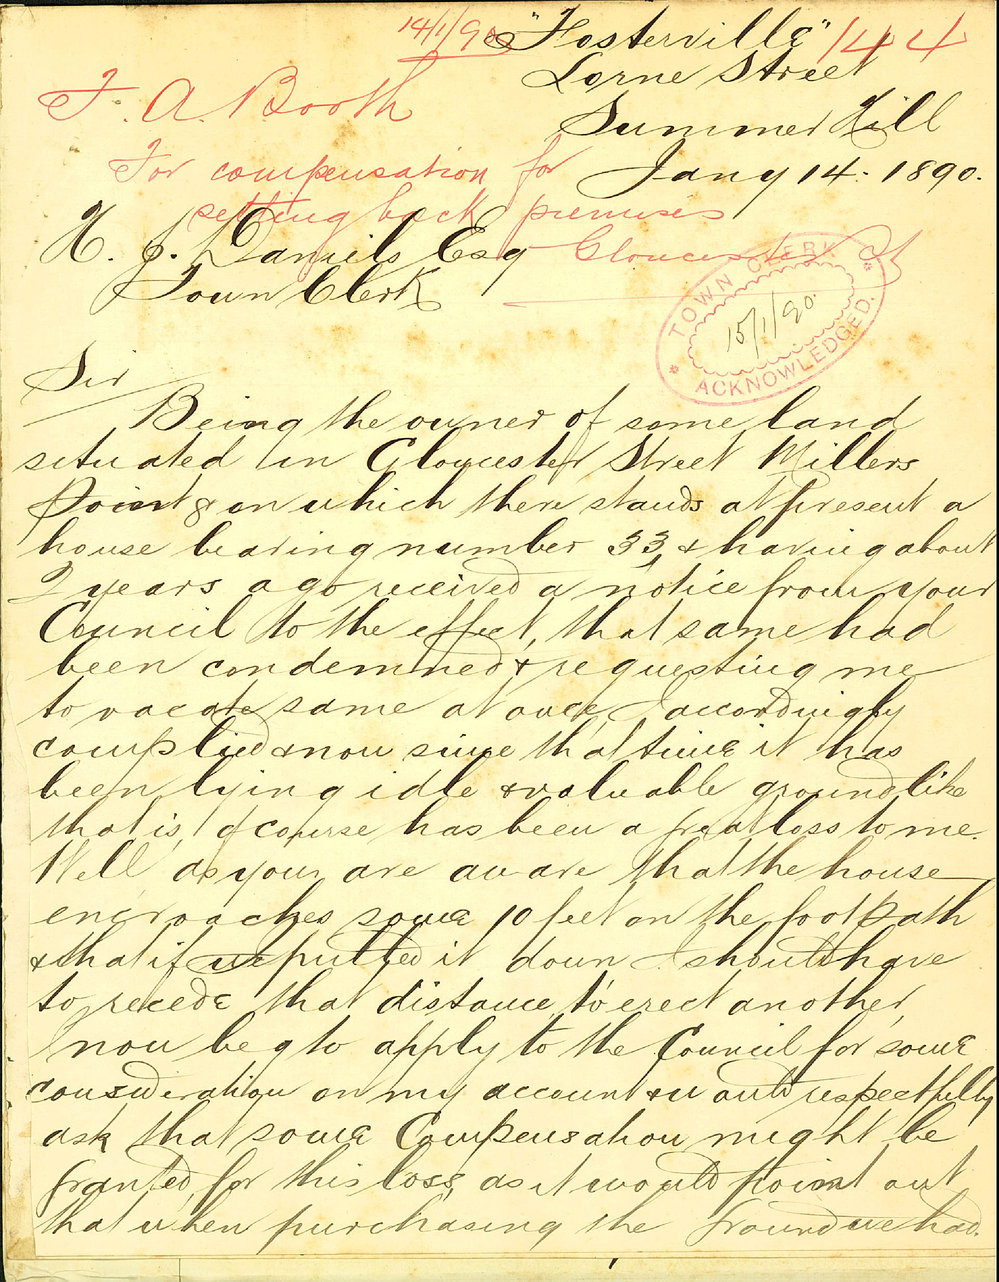 14/1/90
"Fosterville" 144
Lorne Street
F. A. Booth
Summer Hill
For compensation for
Jany 14. 1890.
setting back premises
H. J. Daniels Esq
Gloucester St
Town Clerk
TOWN CLERK
15/1/90.
ACKNOWLEDGED.
Sir
Being the owner of some land
situated in Gloucester Street Millers
Point & on which there stands at present a
house bearing number 33, & having about
2 years ago received a notice from your
Council to the effect, that same had
been condemned & requesting me
to vacate same at once, I accordingly
complied & now since that time it has
been lying idle & valuable ground like
that is, of course has been a great loss to me.
Well, as you are aware that the house
encroaches some 10 feet on the footpath
& that if we pulled it down I should have
to recede that distance, to erect another,
I now beg to apply to the Council for some
consideration on my account & would respectfully
ask that some Compensation might be
granted, for this loss, as it would point out
that when purchasing the ground we had.